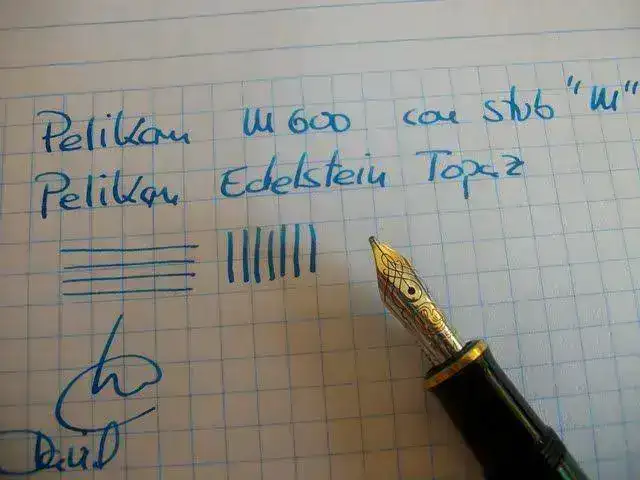 Pelikan M600 con stub "M"
Pelikan Edelstein Topaz
David